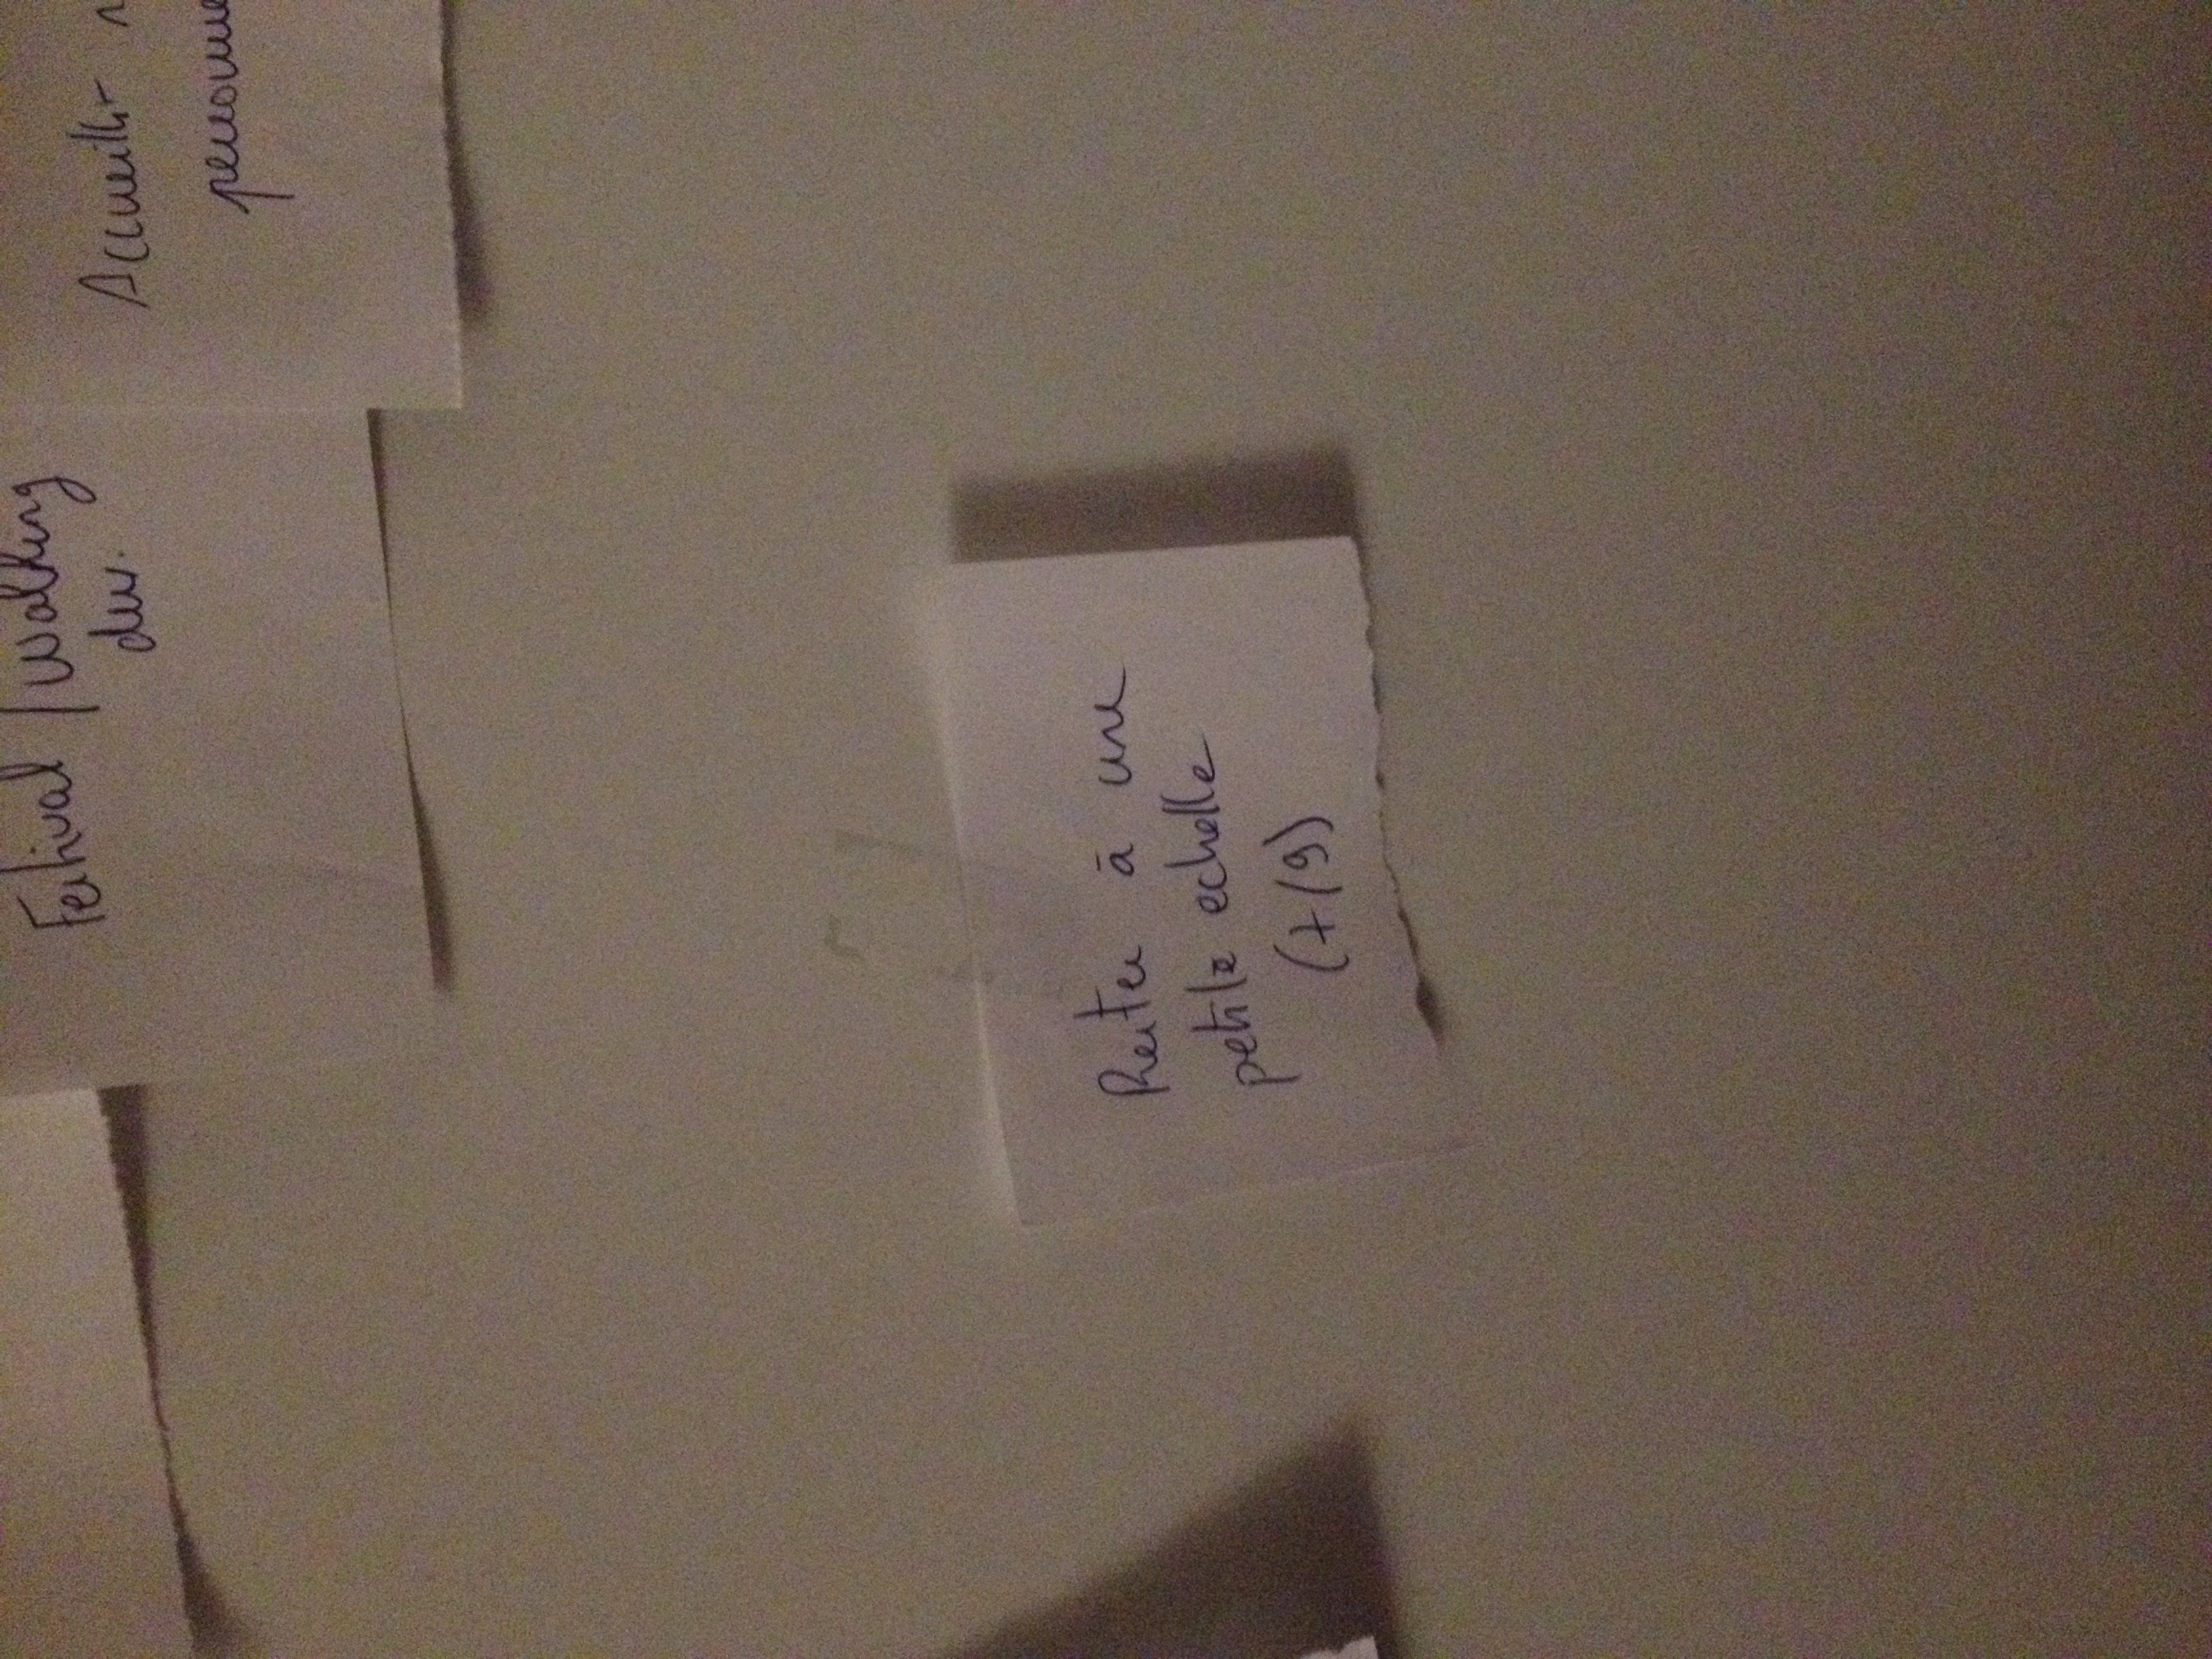 Festival / Walking
Accueillir
personne
Rester à une
petite echelle
(7/9)